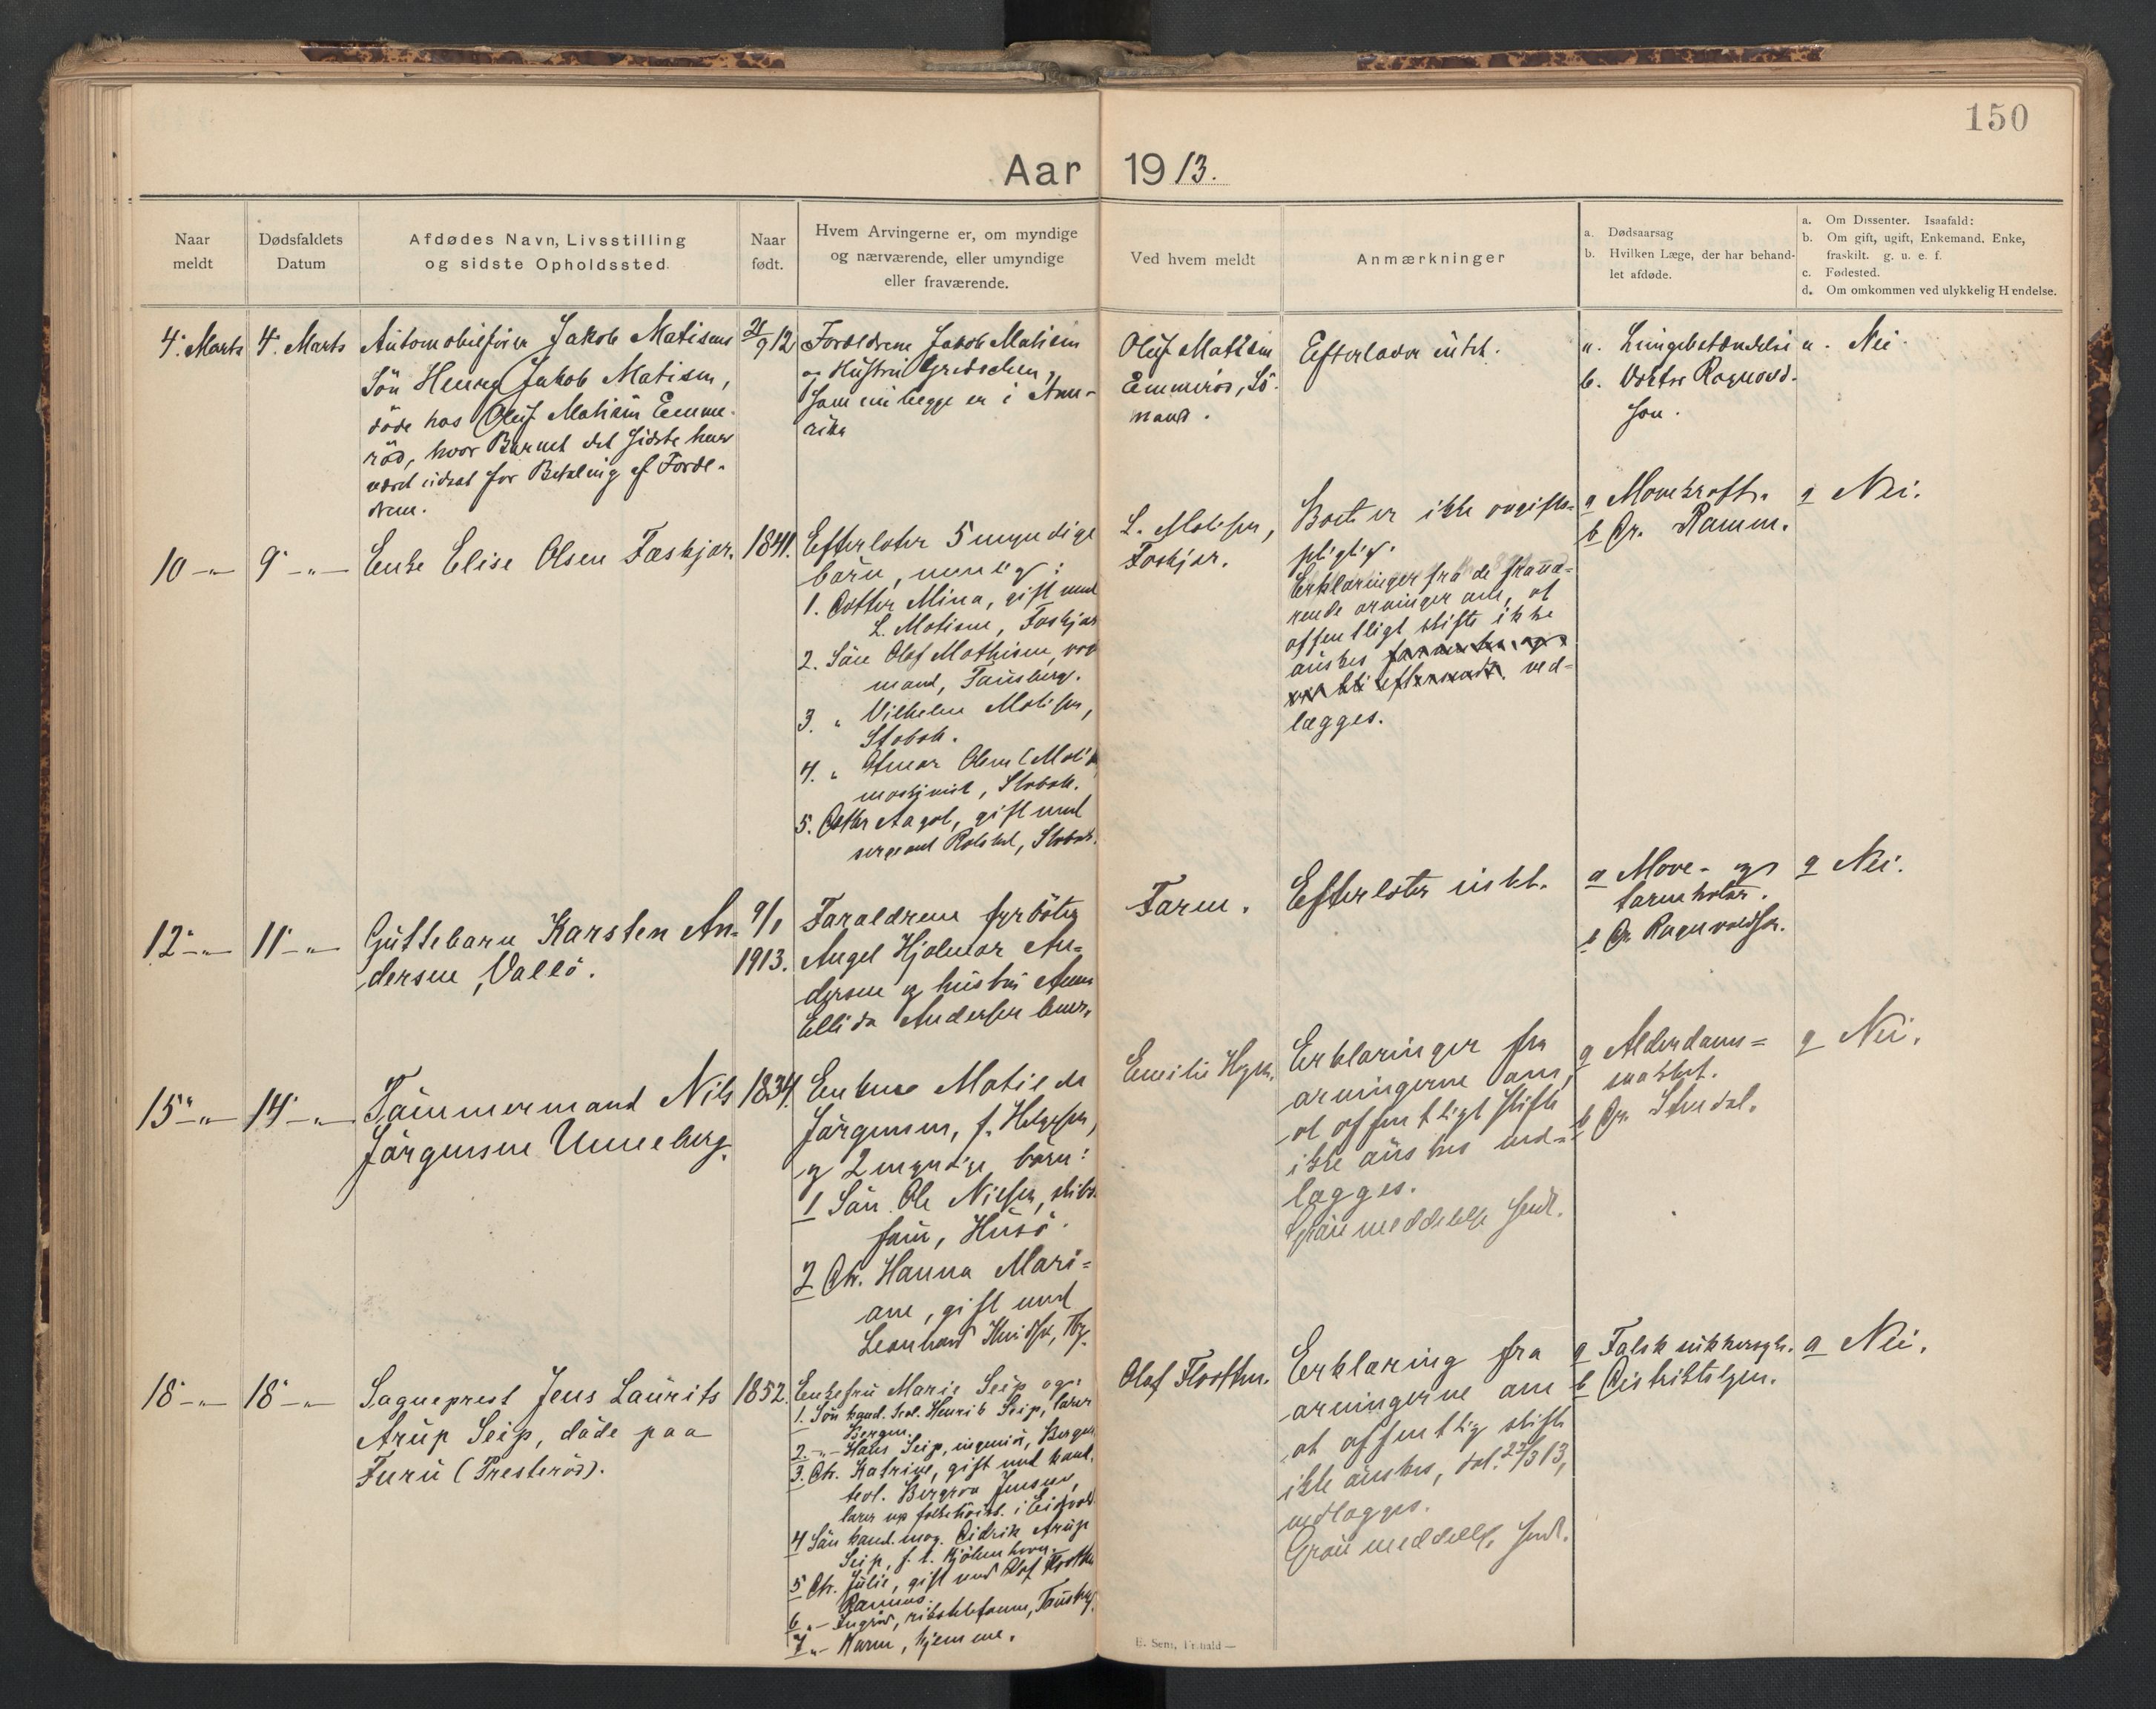 150
Aar 1913.
Naar
meldt
Dødsfaldets
Datum
Afdødes Navn, Livsstilling
og sidste Opholdssted.
Naar
født.
Hvem Arvingerne er, om myndige
og nærværende, eller umyndige
eller fraværende.
Ved hvem meldt
Anmærkninger
a. Dødsaarsag
b. Hvilken Læge, der har behand-
let afdøde.
a. Om Dissenter. Isaafald:
b. Om gift, ugift, Enkemand, Enke,
fraskilt. g. u. e. f.
c. Fødested.
d. Om omkommen ved ulykkelig Hændelse.
4. Marts
4. Marts
Automobilfører Jakob Matisens
Søn Henry Jakob Matisen,
døde hos Oluf Matisen Emme-
rød, hvor Barnet det sidste har
været udsat for Betaling af Foræl-
drene.
9 12
Forældrene Jakob Matisen
og Hustru Gretschen,
som nu begge er i Ame-
rika
Oluf Matisen
Emmerød, Sø-
mand.
Efterlader intet.
a. Lungebetændelse
b. Doktor Ragnvald-
son.
a. Nei.
10 —"—
9 —"—
Enke Elise Olsen Fæskjær.
1841.
Efterlater 5 myndige
børn, nemlig:
1. Datter Mina, gift med
L. Matisen, Fæskjær
2. Søn Olaf Mathisen,
mand, Tønsberg.
3. " Vilhelm Matisen,
Slabok.
4. " Olsen (Matis
maskinist, Slabok.
5. Datter Aagot, gift med
sergeant Rolstad, Slabok.
L. Matisen,
Fæskjær.
Boet er ikke avgifts-
pligtig.
Erklæringer fra de fravæ-
rende arvinger om, at
offentligt skifte ikke
ønskes ved-
lægges.
a Mavekræft.
b Dr. Ramm.
a Nei.
12 —"—
11 —"—
Guttebarn Karsten An-
dersen, Vallø.
9/1
1913.
Forældrene fyrbøter
Angel Hjalmar An-
dersen og hustru Anna
Ellida Andersen
Faren.
Efterlater intet.
a Mave- og
tarmkatar.
b Dr. Ragnvaldsen.
a Nei.
15 —"—
14 —"—
Tømmermand Nils
Jørgensen Unneberg.
1834.
Enken Matilde
Jørgensen, f. Helgesen,
og 2 myndige børn:
1 Søn Ole Nilsen, skibs-
fører, Husø.
2 Dtr. Hanna Mari-
ane, gift med
Leonhard Knudsen, Tbg.
Emilie
Erklæringer fra
arvingerne om,
at offentligt skifte
ikke ønskes ved-
lægges.
Grøn meddelelse sendt.
a Alderdoms-
svakhet.
b Dr. Stendal.
a Nei.
18 —"—
18 —"—
Sogneprest Jens Laurits
Arup Seip, døde paa
Furu (Presterød).
1852.
Enkefru Marie Seip og:
1. Søn kand. teol. Henrik Seip, lærer
Bergen
2 —"— Hans Seip, ingeniør, Bergen
3. Dtr. Katrine, gift med kand.
teol. Bergsvn Jensen,
lærer v. folkehøisk. i Eidsvold
4 Søn kand. mag. Didrik Arup
Seip, f. t. Kjøbenhavn.
5 Dtr. Julie, gift med Olaf Flosthn
Rannes.
6 —"— Ingrid, Tønsberg.
7 —"— Karen, hjemme.
Olaf
Erklæring fra
arvingerne om
at offentlig skifte
ikke ønskes, dat. 27/3 13,
vedlægges.
Grøn meddelelse sendt.
a Falsk sukkersyke.
b Distriktslægen.
a Nei.
E. Sem, Fr.hald —